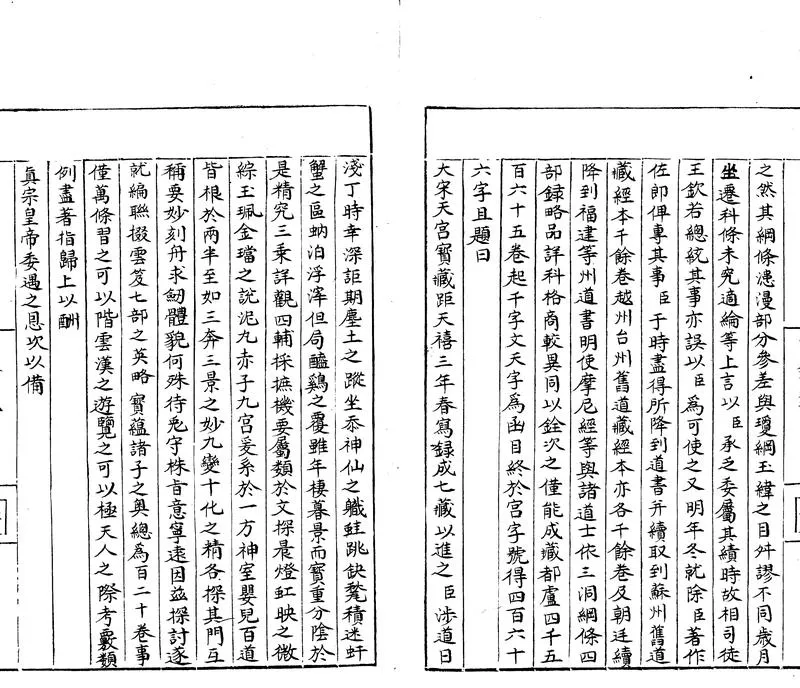 之然其綱條漶漫部分參差與瓊綱玉緯之目舛謬不同歲月
坐遷科條未究適綸等上言以臣承乏委屬其績時故相司徒
王欽若總統其事亦誤以臣爲可使之又明年冬就除臣著作
佐郎俾專其事臣于時盡得所降到道書并續取到蘇州舊道
藏經本千餘卷越州台州舊道藏經本亦各千餘卷及朝廷續
降到福建等州道書明使摩尼經等與諸道士依三洞綱條四
部録略品詳科格商較異同以銓次之僅能成藏都盧四千五
百六十五卷起千字文天字爲函目終於宫字號得四百六十
六字且題曰
大宋天宫寶藏距天禧三年春寫録成七藏以進之臣涉道日
淺丁時幸深詎期塵土之蹤坐忝神仙之軄蛙跳缺甃積迷蚈
蟹之區蚋泊浮滓但局醯鷄之覆雖年棲暮景而寶重分陰於
是精究三乘詳觀四輔採摭機要屬類於文探晨燈虹映之微
綜玉珮金璫之説泥丸赤子九宫爰系於一方神室嬰兒百道
皆根於兩半至如三奔三景之妙九變十化之精各探其門互
稱要妙刻舟求劒體貌何殊待兎守株旨意寧逺因兹探討遂
就編聯掇雲笈七部之英略寶蘊諸子之奥總爲百二十卷事
僅萬條習之可以階雲漢之遊覽之可以極天人之際考覈類
例盡著指歸上以酬
眞宗皇帝委遇之恩次以備